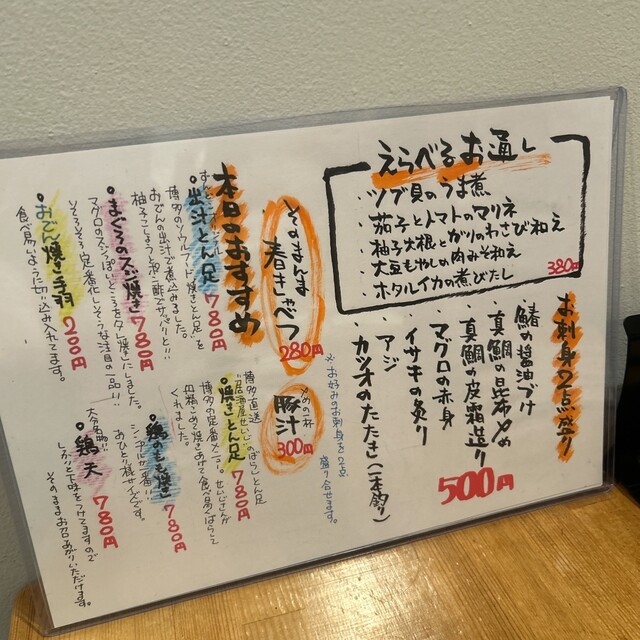 えらべるお通し
・ツブ貝のうま煮
・茄子とトマトのマリネ
・柚子大根とガリのわさび和え
・大豆もやしの肉みそ和え
・ホタルイカの煮びたし
380円
お刺身2点盛り
・鰆の醤油づけ
・真鯛の昆布〆め
・真鯛の皮霜造り
・マグロの赤身
・イサキの炙り
・アジ
・カツオのたたき(一本釣り)
500円
※お好みのお刺身を2点
盛り合せます。
そのまんま
春きゃべつ
280円
〆の一杯
豚汁
300円
本日のおすすめ
・出汁とん足 780円
博多のソウルフード“焼きとん足”を
おでんの出汁で煮込みました。
柚子こしょうとポン酢でサッパリと!!
・まぐろのスジ焼き 780円
マグロのスジっぽいところをタレ焼きにしました。
そろそろ定番化しそうな注目の一品!!
・おでん焼き手羽 200円
食べ易いように切り込み入れてます。
博多直送
“居酒屋せいじ”のばらしとん足
・焼きとん足 780円
博多の定番メニュー。せいじさんが
丹精こめて焼きあげて食べ易くばらして
くれました。
・鶏のもも焼き 780円
シンプルが一番!!
おひとり様サイズです。
・鶏天 780円
大分名物!!
しっかり下味をつけてますので
そのままお召しあがりいただけます。